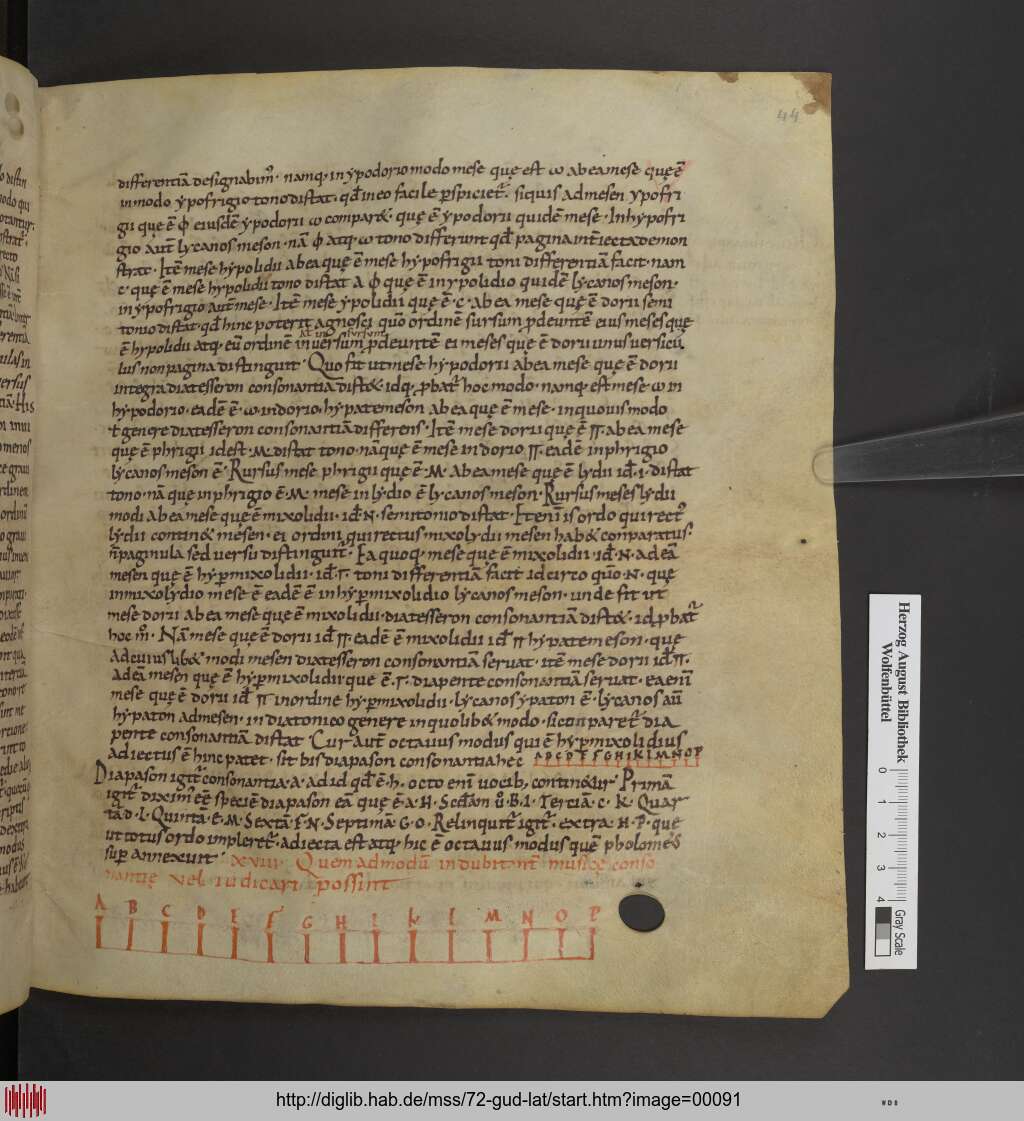 44
differentiã designabim᷒ · namq· in ypodorio modo mese quę est ω ab ea mese quę ē
in modo ypofrigio tono distat · qđ in eo facile pspiciet᷒ · siquis ad mesen ypofri
gii quę ē ϕ eiusdē ypodorii ω compar& · quę ē ypodorii quidē mese · In hypofri
gio aut̄ lycanos meson · nā ϕ atq· ω tono differunt qđ pagina int̄iecta demon
strat · Itē mese hypolidii ab ea quę ē mese hypofrigii toni differentiā facit · nam
c · quę ē mese hypolidii tono distat a ϕ quę ē in ypolidio quidē lycanos meson ·
in ypofrigio autē mese · Itē mese ypolidii quę ē · c · ab ea mese quę ē dorii semi
tonio distat · qđ hinc poterit agnosci quō ordinē sursum pdeuntē eius meses quę
ē hypolidii atq· eū ordinē in uersum pdeuntē ei meses quę ē dorii unus uersicu
lus non pagina distinguit · Quo fit ut mese hypodorii ab ea mese quę ē dorii
integra diatesseron consonantiā dist& · idq· pbat᷒ hoc modo · namq· est mese ω in
hypodorio · eadē ē · ω · in dorio · hypatemeson ab ea quę ē mese · in quouis modo
t genere diatesseron consonantiā differens · Itē mese dorii quę ē π · ab ea mese
quę ē phrigii id est · M · distat tono · nāquę ē mese in dorio π · eadē in phrigio
lycanos meson ē · Rursus mese phrigii quę ē · M · Ab ea mese quę ē lydii id̄ · i · distat
tono · nā quę in phrigio ē · M · mese in lydio ē lycanos meson · Rursus meses lydii
modi ab ea mese quę ē mixolidii · id̄ · N · semitonio distat · Etenī is ordo qui rect᷒
lydii contin& mesen · ei ordini qui rectus mixolydii mesen hab& conparatus ·
n̄ paginula sed uersu distinguit᷒ · Ea quoq· mese quę ē mixolidii · id̄ · N · ad eā
mesen quę ē hypmixolidii · id̄ · Γ · toni differentiā facit idcirco quō · N · quę
in mixolydio mese ē eadē ē in hypmixolidio lycanos meson · unde fit ut
mese dorii ab ea mese quę ē mixolidii · diatesseron consonantiā dist& · idq· pbat᷒
hoc m̊ · Nā mese quę ē dorii id̄ π · eadē ē mixolidii id̄ π hypatemeson · quę
ad cuiuslib& modi mesen diatesseron consonantiā seruat · itē mese dorii id̄ π ·
Ad eā mesen quę ē hypmixolidii quę ē · Γ · diapente consonantiā seruat · ea enī
mese quę ē dorii id̄ π in ordine hypmixolidii · lycanos ypaton ē · lycanos aū
hypaton ad mesen · in diatonico genere in quolib& modo · si conparet᷒ dia
pente consonantiā distat · Cur autē octauus modus qui ē hypmixolidius
adiectus ē hinc patet · sit bis diapason consonantia hec A B C D E F G H I K L M N O P
Diapason igit᷒ consonantia · a · ad id qđ ē · h · octo enī uocib; contin&ur · Primā
igit᷒ dixim᷒ eē speciē diapason eā quę ē · a · H · Scđam ů · B · I · Tertiā · c · K · Quar
tā · d · L · Quintā · E · M · Sextā · F · N · Septimā · G · O · Relinquit᷒ igit᷒ · extra · H · P · quę
ut totus ordo impleret᷒ · adiecta est atq· hic ē octauus modus quem ptholomeꝰ
sup annexuit · XVIII · Quem admodū indubitant᷒ musicę conso
nantię uel iudicari possint
A B C D E F G H I K L M N O P
Herzog August Bibliothek
Wolfenbüttel
0 1 2 3 4
Gray Scale
http://diglib.hab.de/mss/72-gud-lat/start.htm?image=00091